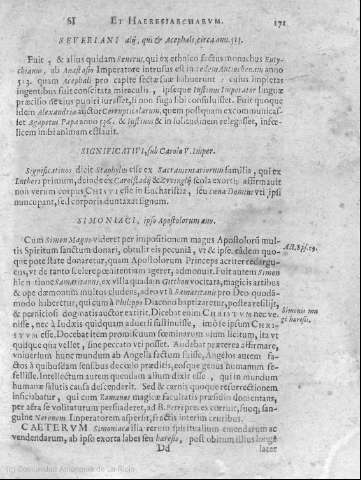 SI ET HAERESIARCHARVM. 171
SEVERIANI alij, qui & Acephali, circa ann. 513.
Fuit, & alius quidam Seuerus, qui ex ethnico factus monachus Euty-
chianus, ab Anastasio Imperatore intrusus est in sedem Antiochenam anno
513. quam Acephali pro capite sectæ suæ habuerunt: cuius impietas
ingentibus fuit conscitata miraculis, ipseque Iustinus Imperator linguæ
præcisio ne eius puniri iussisset, si non fuga sibi consuluisset. Fuit quoque
idem Alexandreæ auctor Corrupticolarum, quem postquam excommunicas-
set Agapetus Papa anno 536. & Iustinus & in solitudinem relegasset, infœ-
licem inibi animam efflauit.
SIGNIFICATIVI, sub Carolo V. Imper.
Significatiuos dicit Stanhilus esse ex Sacramentariorum familia, qui ex
Lutheri primum, deinde ex Carolstadij & Zvvinglij schola exorti affirmauit
non verum corpus CHRISTI esse in Eucharistia, seu cœna Domini vti ipsi
nuncupant, sed corporis duntaxat signum.
SIMONIACI, ipso Apostolorum æuo.
Cum Simon Magus videret per impositionem manus Apostolorũ mul-
tis Spiritum sanctum donari, obtulit eis pecuniã, vt & ipse eadem quo-
que potestate donaretur, quam Apostolorum Princeps acriter redargu-
ens, vt de tanto scelere pœnitentiam ageret, admonuit. Fuit autem Simon
hic natione Samaritanus, ex villa quadam Gitthon vocitata, magicis artibus
& ope dæmonum multos eludens, adeo vt à Samaritanis pro Deo quodã-
modo haberetur, qui cum à Philippo Diacono baptizaretur, postea resilijt,
& perniciosi dogmatis auctor extitit. Dicebat enim CHRISTVM nec ve-
nisse, nec à Iudæis quidquam aduersi sustinuisse, imò se ipsum CHRI-
STVM esse. Docebat item promiscuum fœminarum vsum licitum, ita vt
quisque qua vellet, sine peccato vti posset. Audebat præterea affirmare,
vniuersum hunc mundum ab Angelis factum fuisse, Angelos autem fac-
tos à quibusdam sensibus de cœlo præditis, eosque genus humanum fe-
fellisse. Intellectum autem quendam alium dixit esse, qui in mundum
humanæ salutis causa descenderit. Sed & carnis quoque resurrectionem
inficiabatur, qui cum Romanos magicæ facultatis præsidio dementans,
per aëra se volitaturum persuaderet, ad B. Petri preces corruit, suoq; san-
guine Neronem Imperatorem aspersit, fractis interim cruribus.
CAETERVM Simoniaca illa rerum spiritualium emendarum ac
vendendarum, ab ipso exorta labes seu hæresis, post obitum illius longè
Dd latet
Act. 8. ps. 29.
Simonis ma
gi hæresis.
(c) Comunidad Autónoma de La Rioja